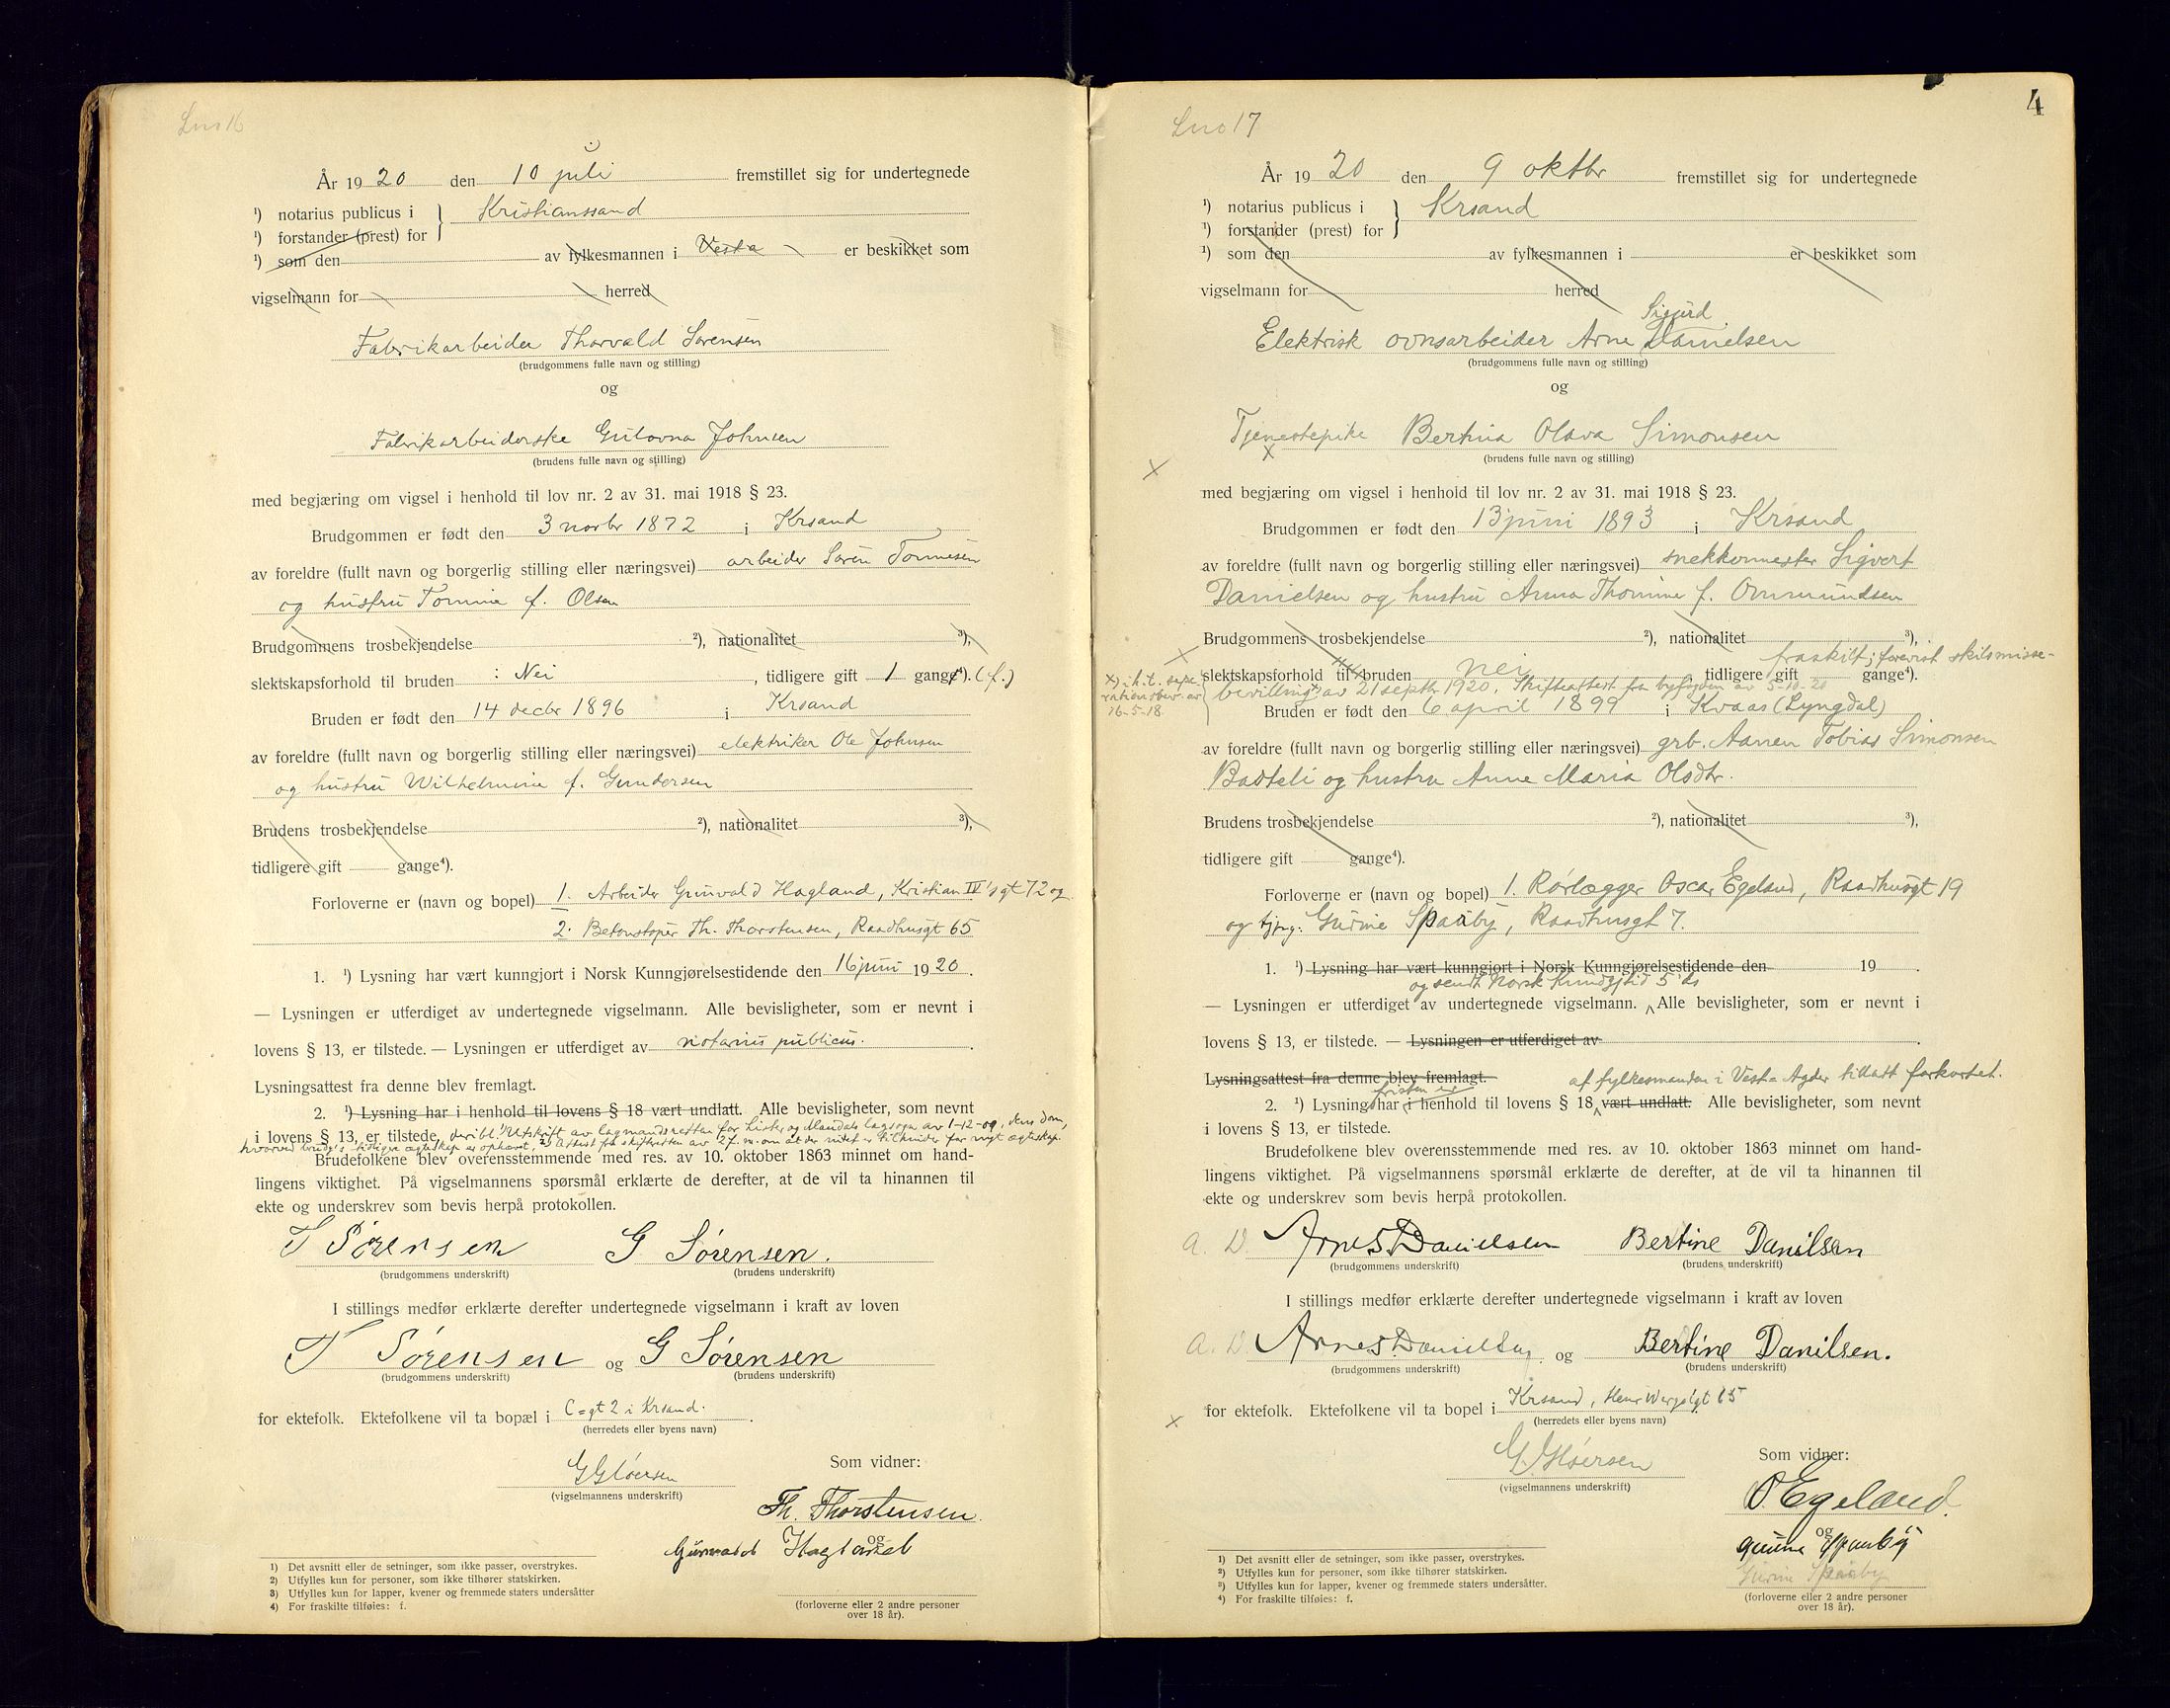 Lno 16
År 1920 den 10 juli fremstillet sig for undertegnede
¹) notarius publicus i } Kristianssand
¹) forstander (prest) for
¹) som den av fylkesmannen i Vesta er beskikket som
vigselmann for herred
Fabrikarbeider Thorvald Sørensen
(brudgommens fulle navn og stilling)
og
Fabrikarbeiderske Gulovna Johnsen
(brudens fulle navn og stilling)
med begjæring om vigsel i henhold til lov nr. 2 av 31. mai 1918 § 23.
Brudgommen er født den 3 novbr 1872 i Krsand
av foreldre (fullt navn og borgerlig stilling eller næringsvei) arbeider Søren Tønnesen
og hustru Tomine f. Olsen
Brudgommens trosbekjendelse ²), nationalitet ³),
slektskapsforhold til bruden : Nei , tidligere gift 1 gang⁴). (f.)
Bruden er født den 14 decbr 1896 i Krsand
av foreldre (fullt navn og borgerlig stilling eller næringsvei) elektriker Ole Johnsen
og hustru Wilhelmine f. Gundersen
Brudens trosbekjendelse ²), nationalitet ³),
tidligere gift gange⁴).
Forloverne er (navn og bopel) 1. Arbeider Gunvald Hagland, Kristian IV's gt 72 og
2. Betonstøper Th. Thorstensen, Raadhusgt 65
1. ¹) Lysning har vært kunngjort i Norsk Kunngjørelsestidende den 16 juni 1920.
— Lysningen er utferdiget av undertegnede vigselmann. Alle bevisligheter, som er nevnt i
lovens § 13, er tilstede. — Lysningen er utferdiget av notarius publicus.
Lysningsattest fra denne blev fremlagt.
2. ¹) Lysning har i henhold til lovens § 18 vært undlatt. Alle bevisligheter, som nevnt
i lovens § 13, er tilstede, deribl. 1) Utskrift av lagmandsretten for Lister og Mandals lagsogn av 1-12-09, dens dom,
hvorved brudg's tidligere ægteskap er ophævet, 2) Attest fra skifteretten av 2 f. m. om at der intet er til hinder for nyt ægteskap.
Brudefolkene blev overensstemmende med res. av 10. oktober 1863 minnet om hand-
lingens viktighet. På vigselmannens spørsmål erklærte de derefter, at de vil ta hinannen til
ekte og underskrev som bevis herpå protokollen.
T Sørensen G Sørensen.
(brudgommens underskrift) (brudens underskrift)
I stillings medfør erklærte derefter undertegnede vigselmann i kraft av loven
T Sørensen og G Sørensen
(brudgommens underskrift) (brudens underskrift)
for ektefolk. Ektefolkene vil ta bopæl i C=gt 2 i Krsand.
(herredets eller byens navn)
Som vidner:
G Gløersen
(vigselmannens underskrift)
Th. Thorstensen
og
Gunvald Hagland
(forloverne eller 2 andre personer
over 18 år).
1) Det avsnitt eller de setninger, som ikke passer, overstrykes.
2) Utfylles kun for personer, som ikke tilhører statskirken.
3) Utfylles kun for lapper, kvener og fremmede staters undersåtter
4) For fraskilte tilføies: f.
4
Lno 17
År 1920 den 9 oktbr fremstillet sig for undertegnede
¹) notarius publicus i } Krsand
¹) forstander (prest) for
¹) som den av fylkesmannen i er beskikket som
vigselmann for herred
Sigurd
Elektrisk ovnsarbeider Arne Danielsen
(brudgommens fulle navn og stilling)
og
Tjenestepike Bertina Olava Simonsen
x
(brudens fulle navn og stilling)
x
med begjæring om vigsel i henhold til lov nr. 2 av 31. mai 1918 § 23.
Brudgommen er født den 13 juni 1893 i Krsand
av foreldre (fullt navn og borgerlig stilling eller næringsvei) snekkermester Sigvert
Danielsen og hustru Anna Thomine f. Ommundsen
Brudgommens trosbekjendelse ²), nationalitet ³),
fraskilt; forevist skilsmisse-
slektskapsforhold til bruden nei tidligere gift gange⁴).
bevilling av 21 septbr 1920. Skifteattest fra byfogden av 5-10-20
x) i h. t. sepa-
rationsbev. av
16-5-18
Bruden er født den 6 april 1899 i Kvaas (Lyngdal)
av foreldre (fullt navn og borgerlig stilling eller næringsvei) grb. Aanen Tobias Simonsen
Badteli og hustru Anne Maria Olsdtr.
Brudens trosbekjendelse ²), nationalitet ³),
tidligere gift gange⁴).
Forloverne er (navn og bopel) 1. Rørlægger Oscar Egeland, Raadhusgt 19
og tjpg: Gurine Spaaby, Raadhusgt 7.
1. ¹) Lysning har vært kunngjort i Norsk Kunngjørelsestidende den 19 .
og sendt Norsk Kundgjtid 5 ds
— Lysningen er utferdiget av undertegnede vigselmann. Alle bevisligheter, som er nevnt i
lovens § 13, er tilstede. — Lysningen er utferdiget av .
Lysningsattest fra denne blev fremlagt. af fylkesmanden i Vest-Agder tillatt forkortet.
fristen er
2. ¹) Lysning har i henhold til lovens § 18 vært undlatt. Alle bevisligheter, som nevnt
i lovens § 13, er tilstede.
Brudefolkene blev overensstemmende med res. av 10. oktober 1863 minnet om hand-
lingens viktighet. På vigselmannens spørsmål erklærte de derefter, at de vil ta hinannen til
ekte og underskrev som bevis herpå protokollen.
A. D. Arne S Danielsen Bertine Danilsen
(brudgommens underskrift) (brudens underskrift)
I stillings medfør erklærte derefter undertegnede vigselmann i kraft av loven
A. D. Arne S. Danielsen og Bertine Danilsen.
(brudgommens underskrift) (brudens underskrift)
x
for ektefolk. Ektefolkene vil ta bopel i Krsand, Henr Wergelgt 65
(herredets eller byens navn)
Som vidner:
G. Gløersen
(vigselmannens underskrift)
O Egeland.
og
Gurine Spaaby
Gurine Spaaby
(forloverne eller 2 andre personer
over 18 år).
1) Det avsnitt eller de setninger, som ikke passer, overstrykes.
2) Utfylles kun for personer, som ikke tilhører statskirken.
3) Utfylles kun for lapper, kvener og fremmede staters undersåtter.
4) For fraskilte tilføies: f.